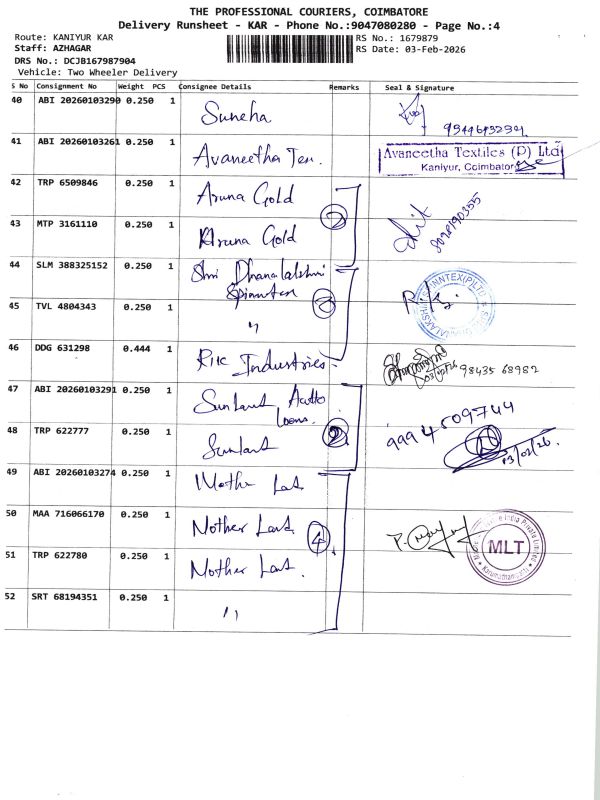 THE PROFESSIONAL COURIERS, COIMBATORE
Delivery Runsheet - KAR - Phone No.:9047080280 - Page No.:4
Route: KANIYUR KAR
RS No.: 1679879
Staff: AZHAGAR
RS Date: 03-Feb-2026
DRS No.: DCJB167987904
Vehicle: Two Wheeler Delivery
S No Consignment No Weight PCS Consignee Details Remarks Seal & Signature
40 ABI 20260103290 0.250 1 Suneha
41 ABI 20260103261 0.250 1 Avaneetha Tex.
Avaneetha Textiles (P) Ltd
Kaniyur, Coimbatore
42 TRP 6509846 0.250 1 Aruna Gold
2
43 MTP 3161110 0.250 1 Aruna Gold
44 SLM 388325152 0.250 1 Shri Dhanalakshmi
Spinntex
45 TVL 4804343 0.250 1 "
46 DDG 631298 0.444 1 Industries
98435 68982
47 ABI 20260103291 0.250 1 Auto
48 TRP 622777 0.250 1
9994509744
03/02/26
49 ABI 20260103274 0.250 1
50 MAA 716066170 0.250 1 Mother
4
MLT
51 TRP 622780 0.250 1 Mother
52 SRT 68194351 0.250 1 "